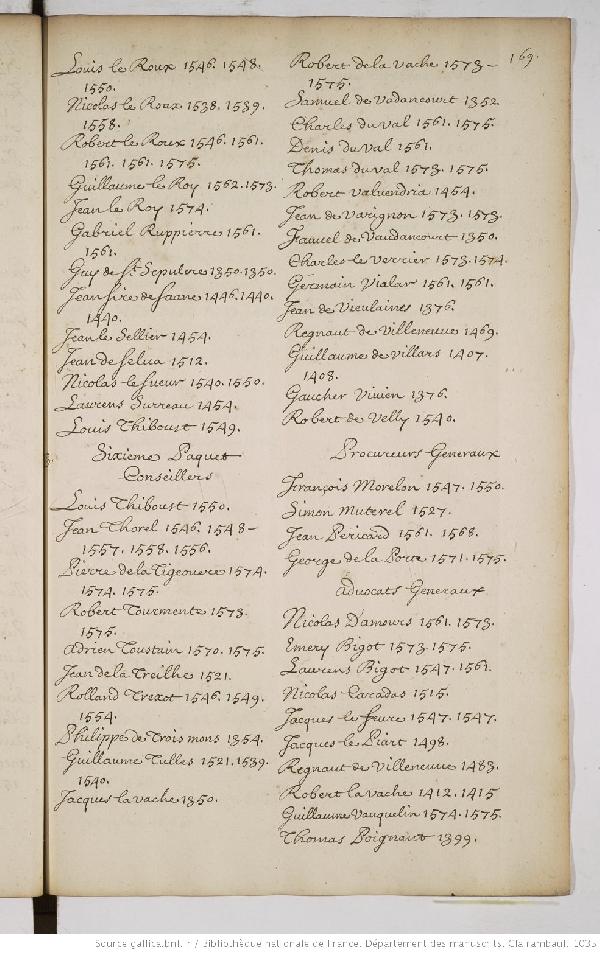 169.
Louis le Roux 1546. 1548.
1550.
Nicolas le Roux 1538. 1539.
1558.
Robert le Roux 1546. 1561.
1561. 1561. 1575.
Guillaume le Roy 1562. 1573.
Jean le Roy 1574.
Gabriel Ruppierre 1561.
1561.
Guy de St. Sepulcre 1350. 1350.
Jean sire de saane 1446. 1440.
1440.
Jean le Sellier 1454.
Jean de selua 1512.
Nicolas le sueur 1540. 1550.
Laurens Surreau 1454.
Louis Thiboust 1549.
Sixieme Paquet
Conseillers
Louis Thiboust 1550.
Jean Thorel 1546. 1548 -
1557. 1558. 1556.
Pierre de la Tigeouere 1574.
1574. 1575.
Robert Tourmente 1573.
1575.
Adrien Toustain 1570. 1575.
Jean de la Treilhe 1521.
Rolland Trexot 1546. 1549.
1554.
Philippe de Trois mons 1354.
Guillaume Tulles 1521. 1539.
1540.
Jacques la vache 1350.
Robert de la vache 1573 -
1575.
Samuel de Vadancourt 1352.
Charles du val 1561. 1575.
Denis du val 1561.
Thomas du val 1573. 1575.
Robert valuendria 1454.
Jean de Varignon 1573. 1573.
Samuel de Vaudancourt 1350.
Charles le verrier 1573. 1574.
Germain Vialar 1561. 1561.
Jean de Vieulaines 1376.
Regnaut de Villeneuue 1469.
Guillaume de villars 1407.
1408.
Gaucher Vivien 1376.
Robert de Velly 1540.
Procureurs Generaux
François Morelon 1547. 1550.
Simon Muterel 1527.
Jean Pericard 1561. 1568.
George de la Porte 1571. 1575.
Advocats Generaux
Nicolas Damours 1561. 1573.
Emery Bigot 1573. 1575.
Laurens Bigot 1547. 1561.
Nicolas Caradas 1515.
Jacques le feure 1547. 1547.
Jacques le Liart 1498.
Regnaut de Villeneuue 1483.
Robert la vache 1412. 1415
Guillaume Vauquelin 1574. 1575.
Thomas Poignant 1399.
Source gallica.bnf.fr / Bibliothèque nationale de France. Département des manuscrits. Clairambault. 1035